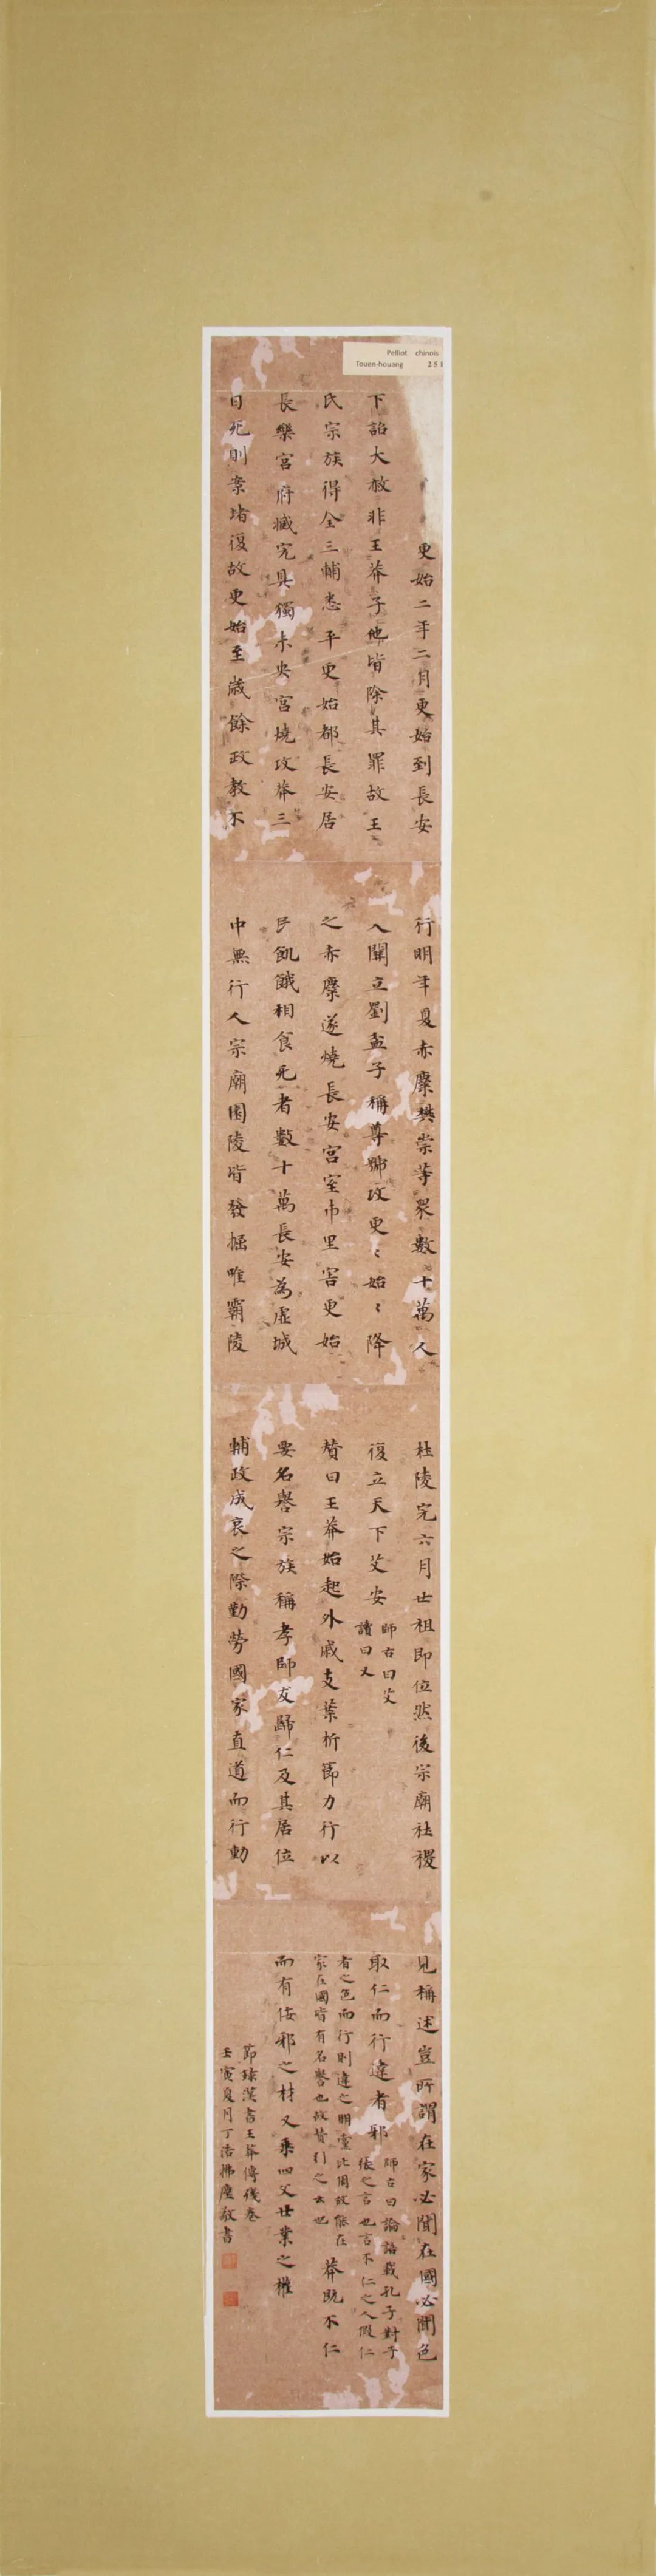 Pelliot chinois
Touen-houang 251
更始二年二月更始到長安
下詔大赦非王莽子他皆除其罪故王
氏宗族得全三輔悉平更始都長安居
長樂宮府臧完具獨未央宮燒攻莽三
日死則案堵復故更始至歲餘政教不
行明年夏赤麋樊崇等衆數十萬人
入關立劉盆子稱尊號攻更〻始〻降
之赤麋遂燒長安宮室市里害更始
民飢餓相食死者數十萬長安為虛城
中無行人宗廟園陵皆發掘唯霸陵
杜陵完六月世祖即位然後宗廟社稷
復立天下艾安師古曰艾讀曰乂
贊曰王莽始起外戚支葉折節力行以
要名譽宗族稱孝師友歸仁及其居位
輔政成哀之際勤勞國家直道而行動
見稱述豈所謂在家必聞在國必聞色
取仁而行違者邪師古曰論語載孔子對子張之言也言不仁之人假仁
者之色而行則違之朋黨比周故能在家在國皆有名譽也故贊引之云也莽既不仁
而有佞邪之材又乘四父世業之權
節録漢書王莽傳殘卷
壬寅夏月丁浩拂塵敬書